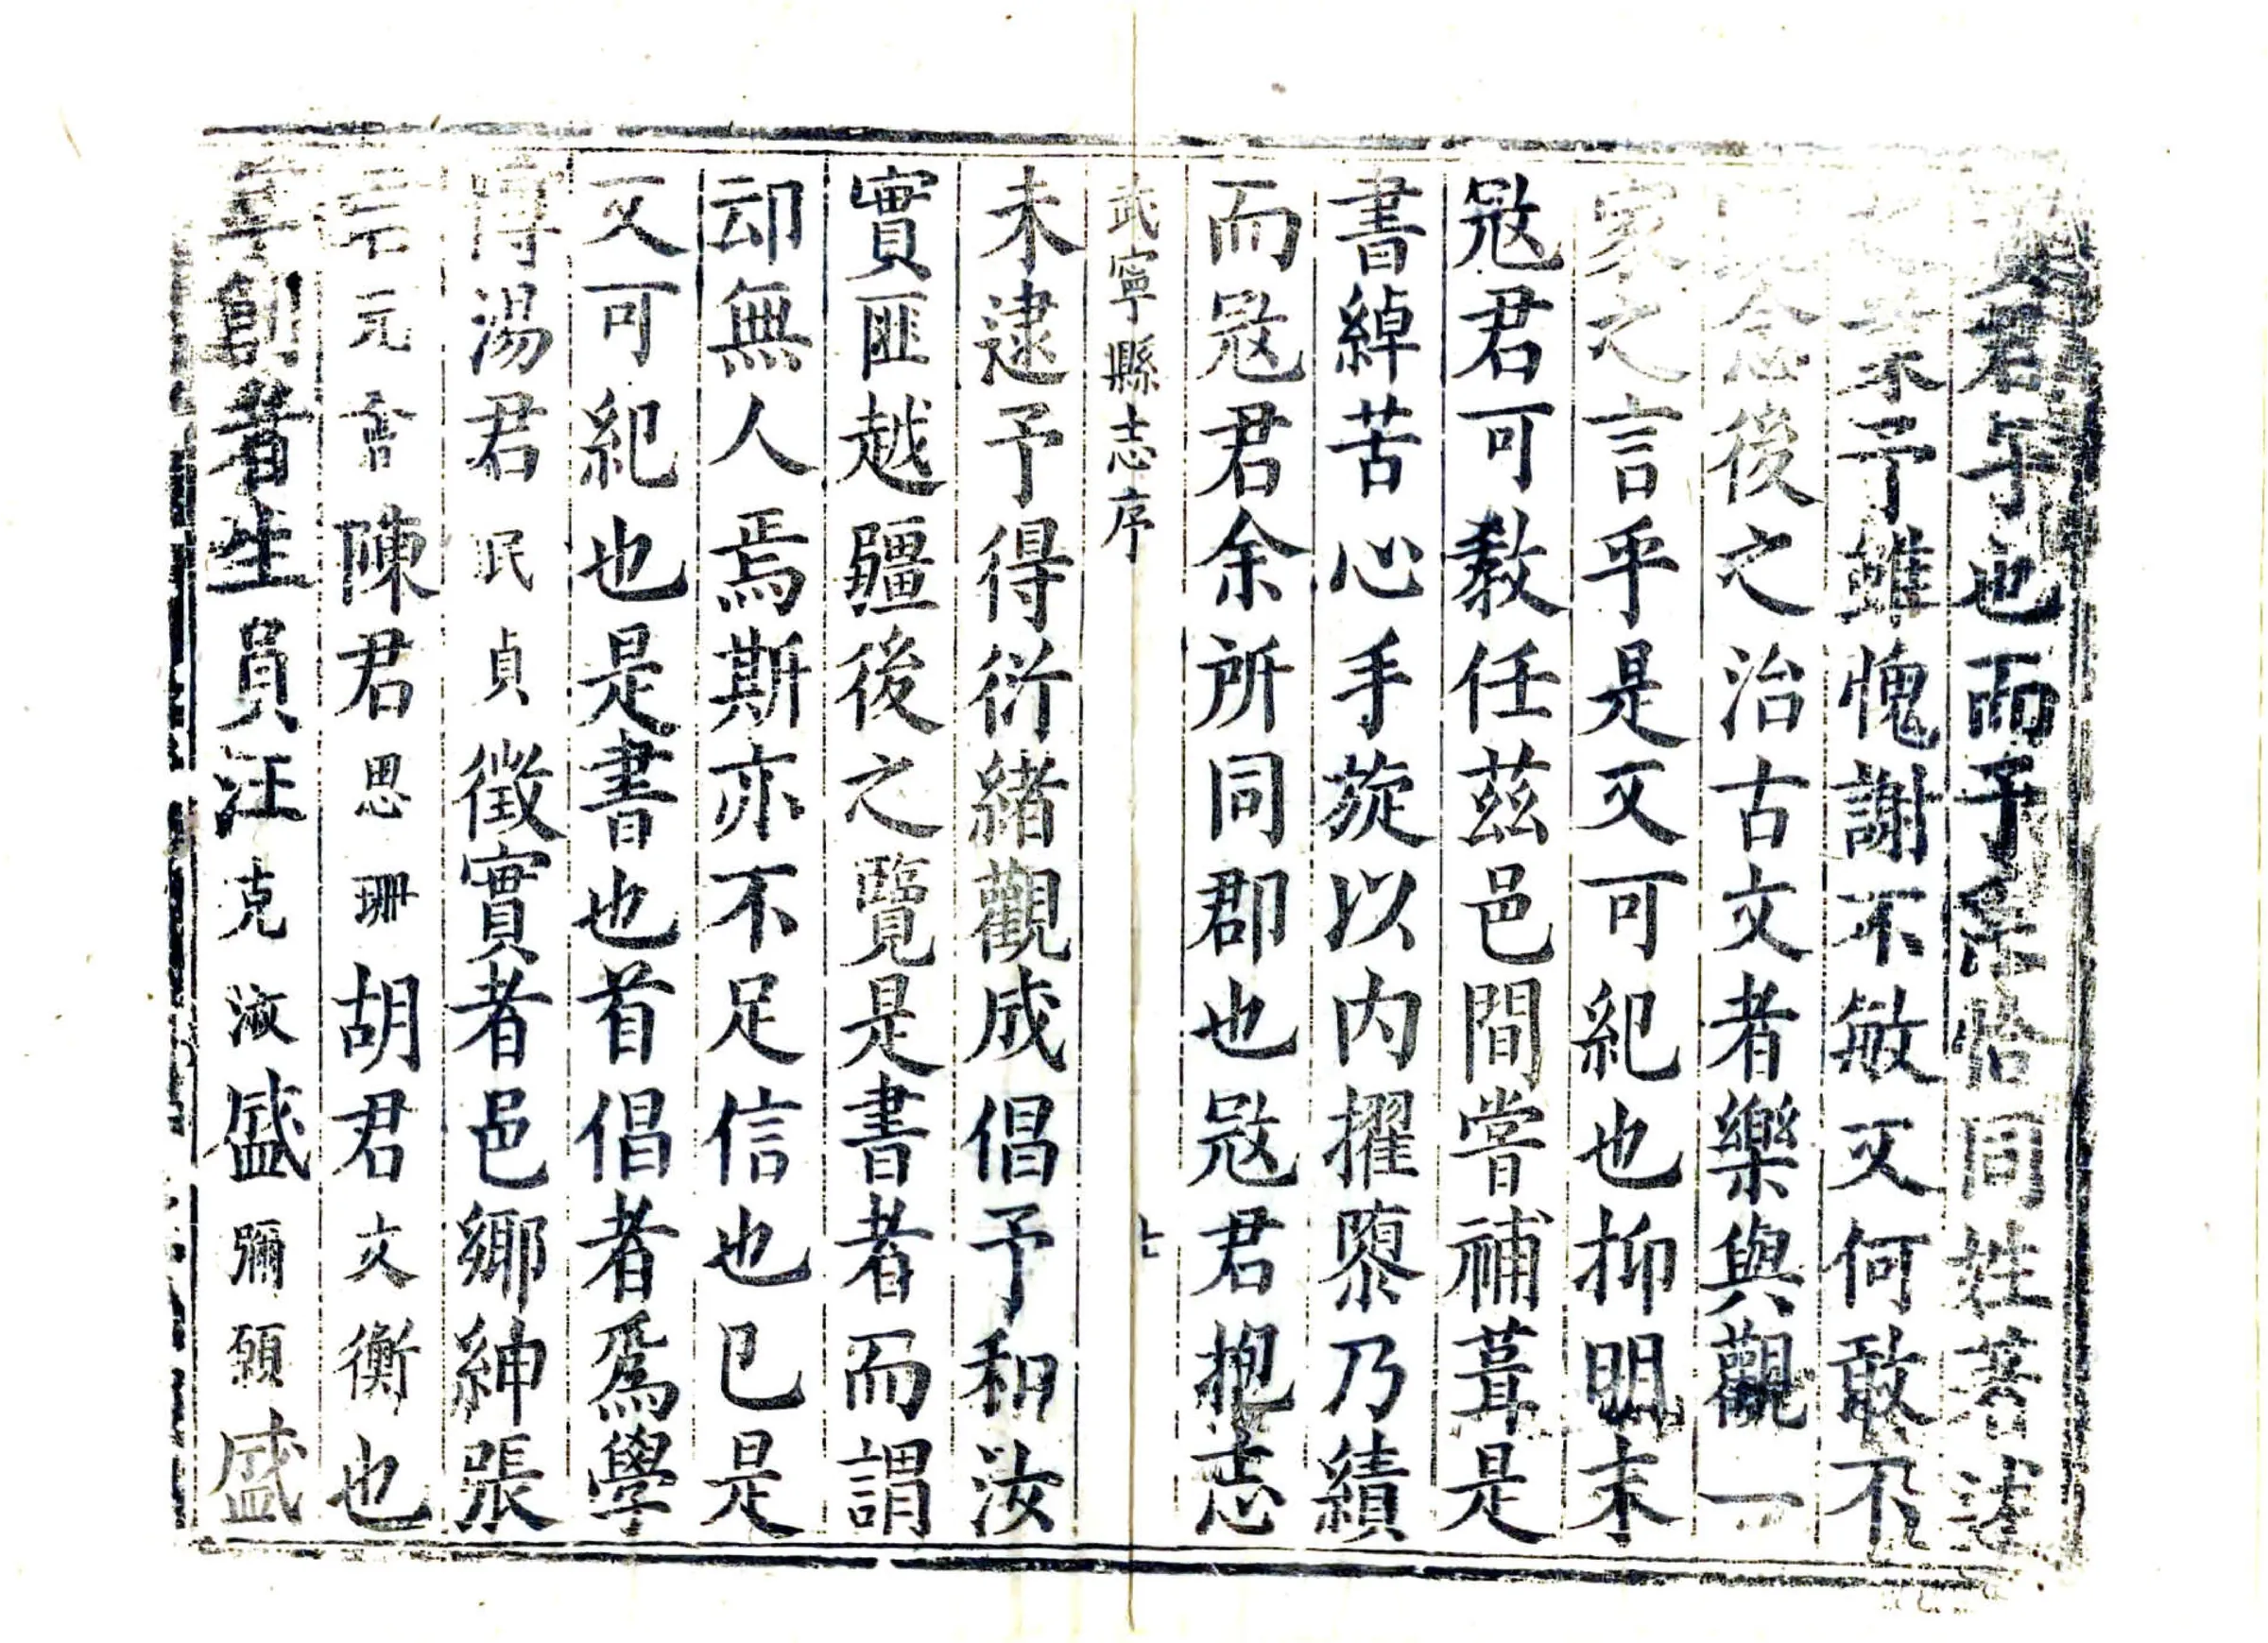 君字也而予系恰同姓著述
予雖愧謝不敏又何敢不
念後之治古文者樂與觀一
家之言乎是又可紀也抑明末
㓂君可教任茲邑間嘗補葺是
書綽苦心手蔉以内擢隳乃績
而㓂君余所同郡也㓂君抱志
武寧縣志序
七
未逮予得衍緒觀成倡予和汝
實匪越疆後之覽是書者而謂
却無人焉斯亦不足信也已是
又可紀也是書也首倡者爲學
博湯君民貞徵實者邑鄉紳張
元㫖陳君思珊胡君文衡也
草創者生員汪克淑盛彌頴盛